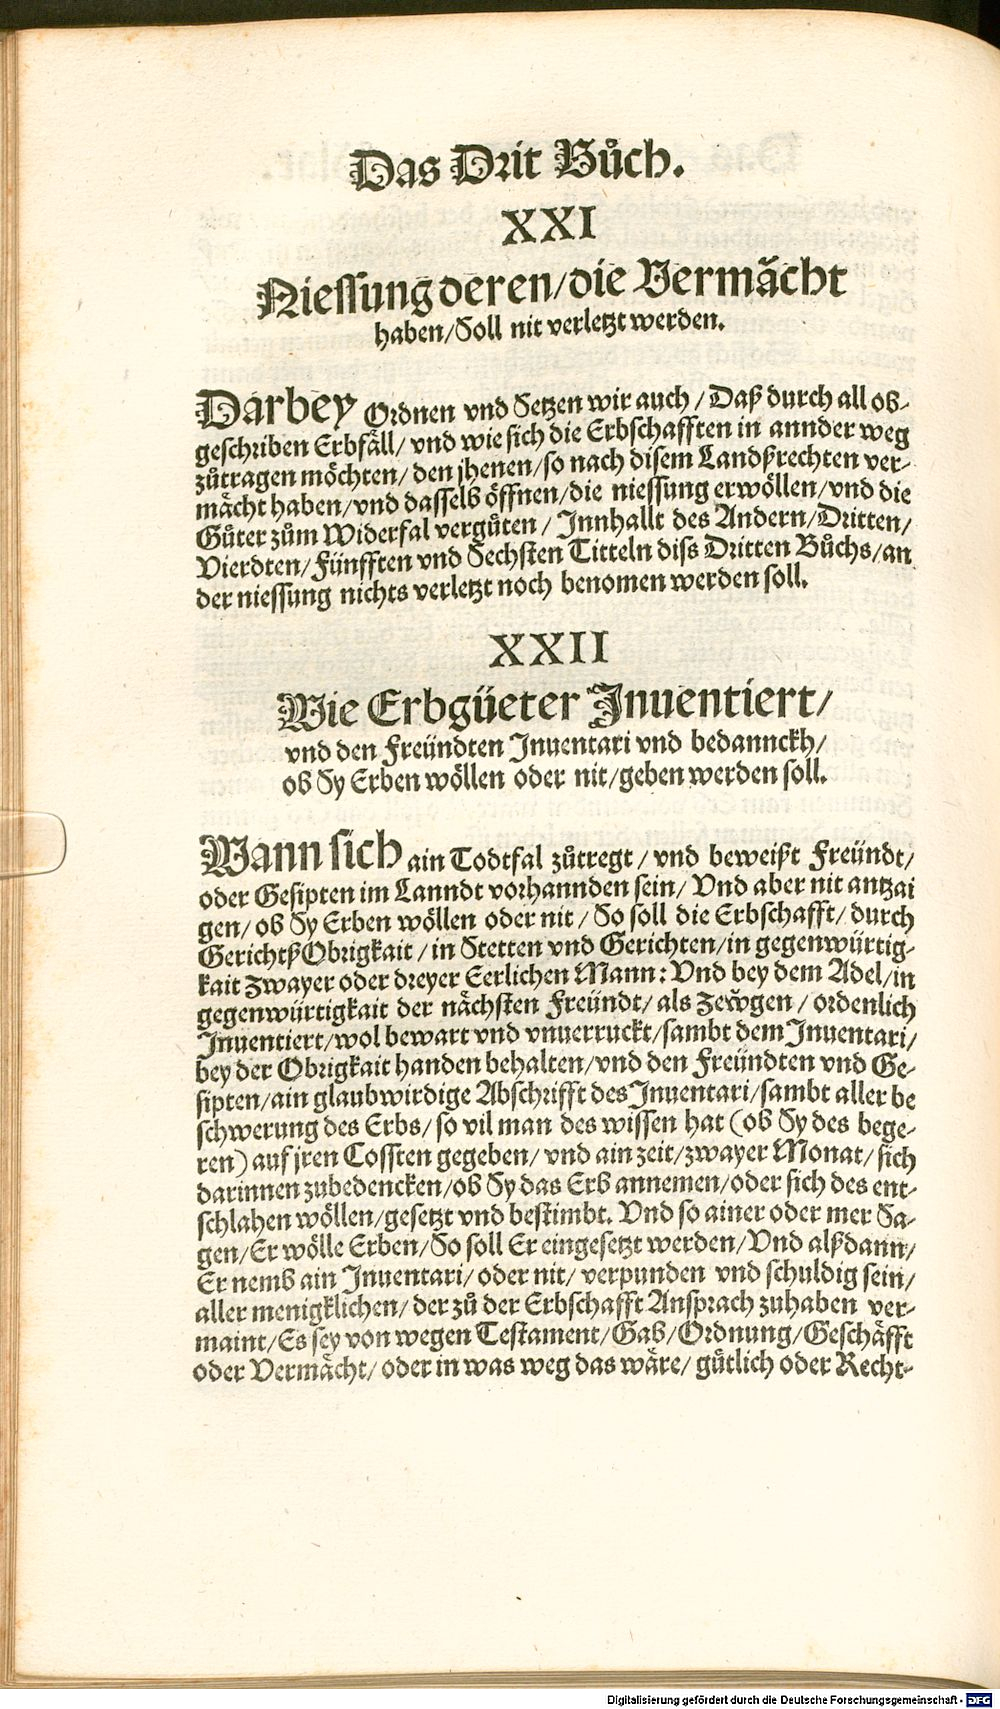 Das Drit Bůch.
XXI
Niessung deren/die Vermächt
haben/Soll nit verletzt werden.
Darbey Ordnen vnd Setzen wir auch/Daß durch all ob-
geschriben Erbfäll/vnd wie sich die Erbschafften in annder weg
zůtragen möchten/den jhenen/so nach disem Landßrechten ver-
mächt haben/vnd dasselb öffnen/die niessung erwöllen/vnd die
Güter zům Widerfal vergüten/Innhallt des Andern/Dritten/
Vierdten/Fünfften vnd Sechsten Titteln diss Dritten Bůchs/an
der niessung nichts verletzt noch benomen werden soll.
XXII
Wie Erbgüeter Inuentiert/
vnd den Freündten Inuentari vnd bedannckh/
ob Sy Erben wöllen oder nit/geben werden soll.
Wann sich ain Todtfal zůtregt/vnd beweißt Freündt/
oder Gesipten im Lanndt vorhannden sein/Vnd aber nit antzai
gen/ob Sy Erben wöllen oder nit/So soll die Erbschafft/durch
GerichtßObrigkait/in Stetten vnd Gerichten/in gegenwürtig-
kait zwayer oder dreyer Eerlichen Mann:Vnd bey dem Adel/in
gegenwürtigkait der nächsten Freündt/als Zeẘgen/ordenlich
Inuentiert/wol bewart vnd vnuerruckt/sambt dem Inuentari/
bey der Obrigkait handen behalten/vnd den Freündten vnd Ge-
sipten/ain glaubwirdige Abschrifft des Inuentari/sambt aller be
schwerung des Erbs/so vil man des wissen hat (ob Sy des bege-
ren) auf jren Cossten gegeben/vnd ain zeit/zwayer Monat/sich
darinnen zubedencken/ob Sy das Erb annemen/oder sich des ent-
schlahen wöllen/gesetzt vnd bestimbt. Vnd so ainer oder mer Sa-
gen/Er wölle Erben/So soll Er eingesetzt werden/Vnd alßdann/
Er nemb ain Inuentari/oder nit/verpunden vnd schuldig sein/
aller menigklichen/der zů der Erbschafft Ansprach zuhaben ver-
maint/Es sey von wegen Testament/Gab/Ordnung/Geschäfft
oder Vermächt/oder in was weg das wäre/gütlich oder Recht-
Digitalisierung gefördert durch die Deutsche Forschungsgemeinschaft - DFG